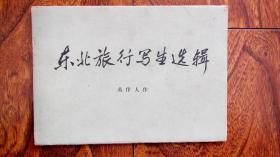 东北旅行写生选辑
吴作人作